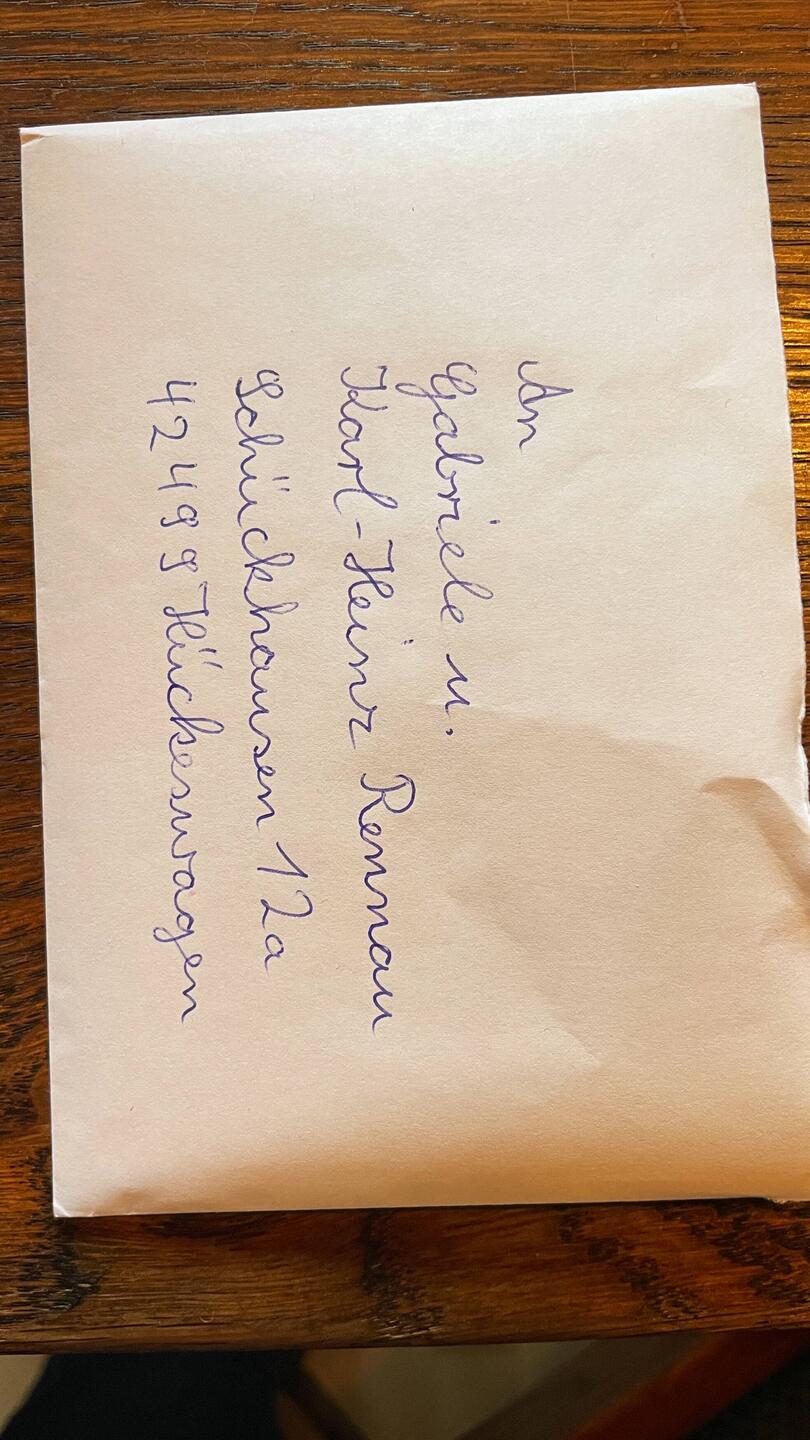 An
Gabriele u.
Karl-Heinz Rennau
Schückhausen 12a
42499 Hückeswagen